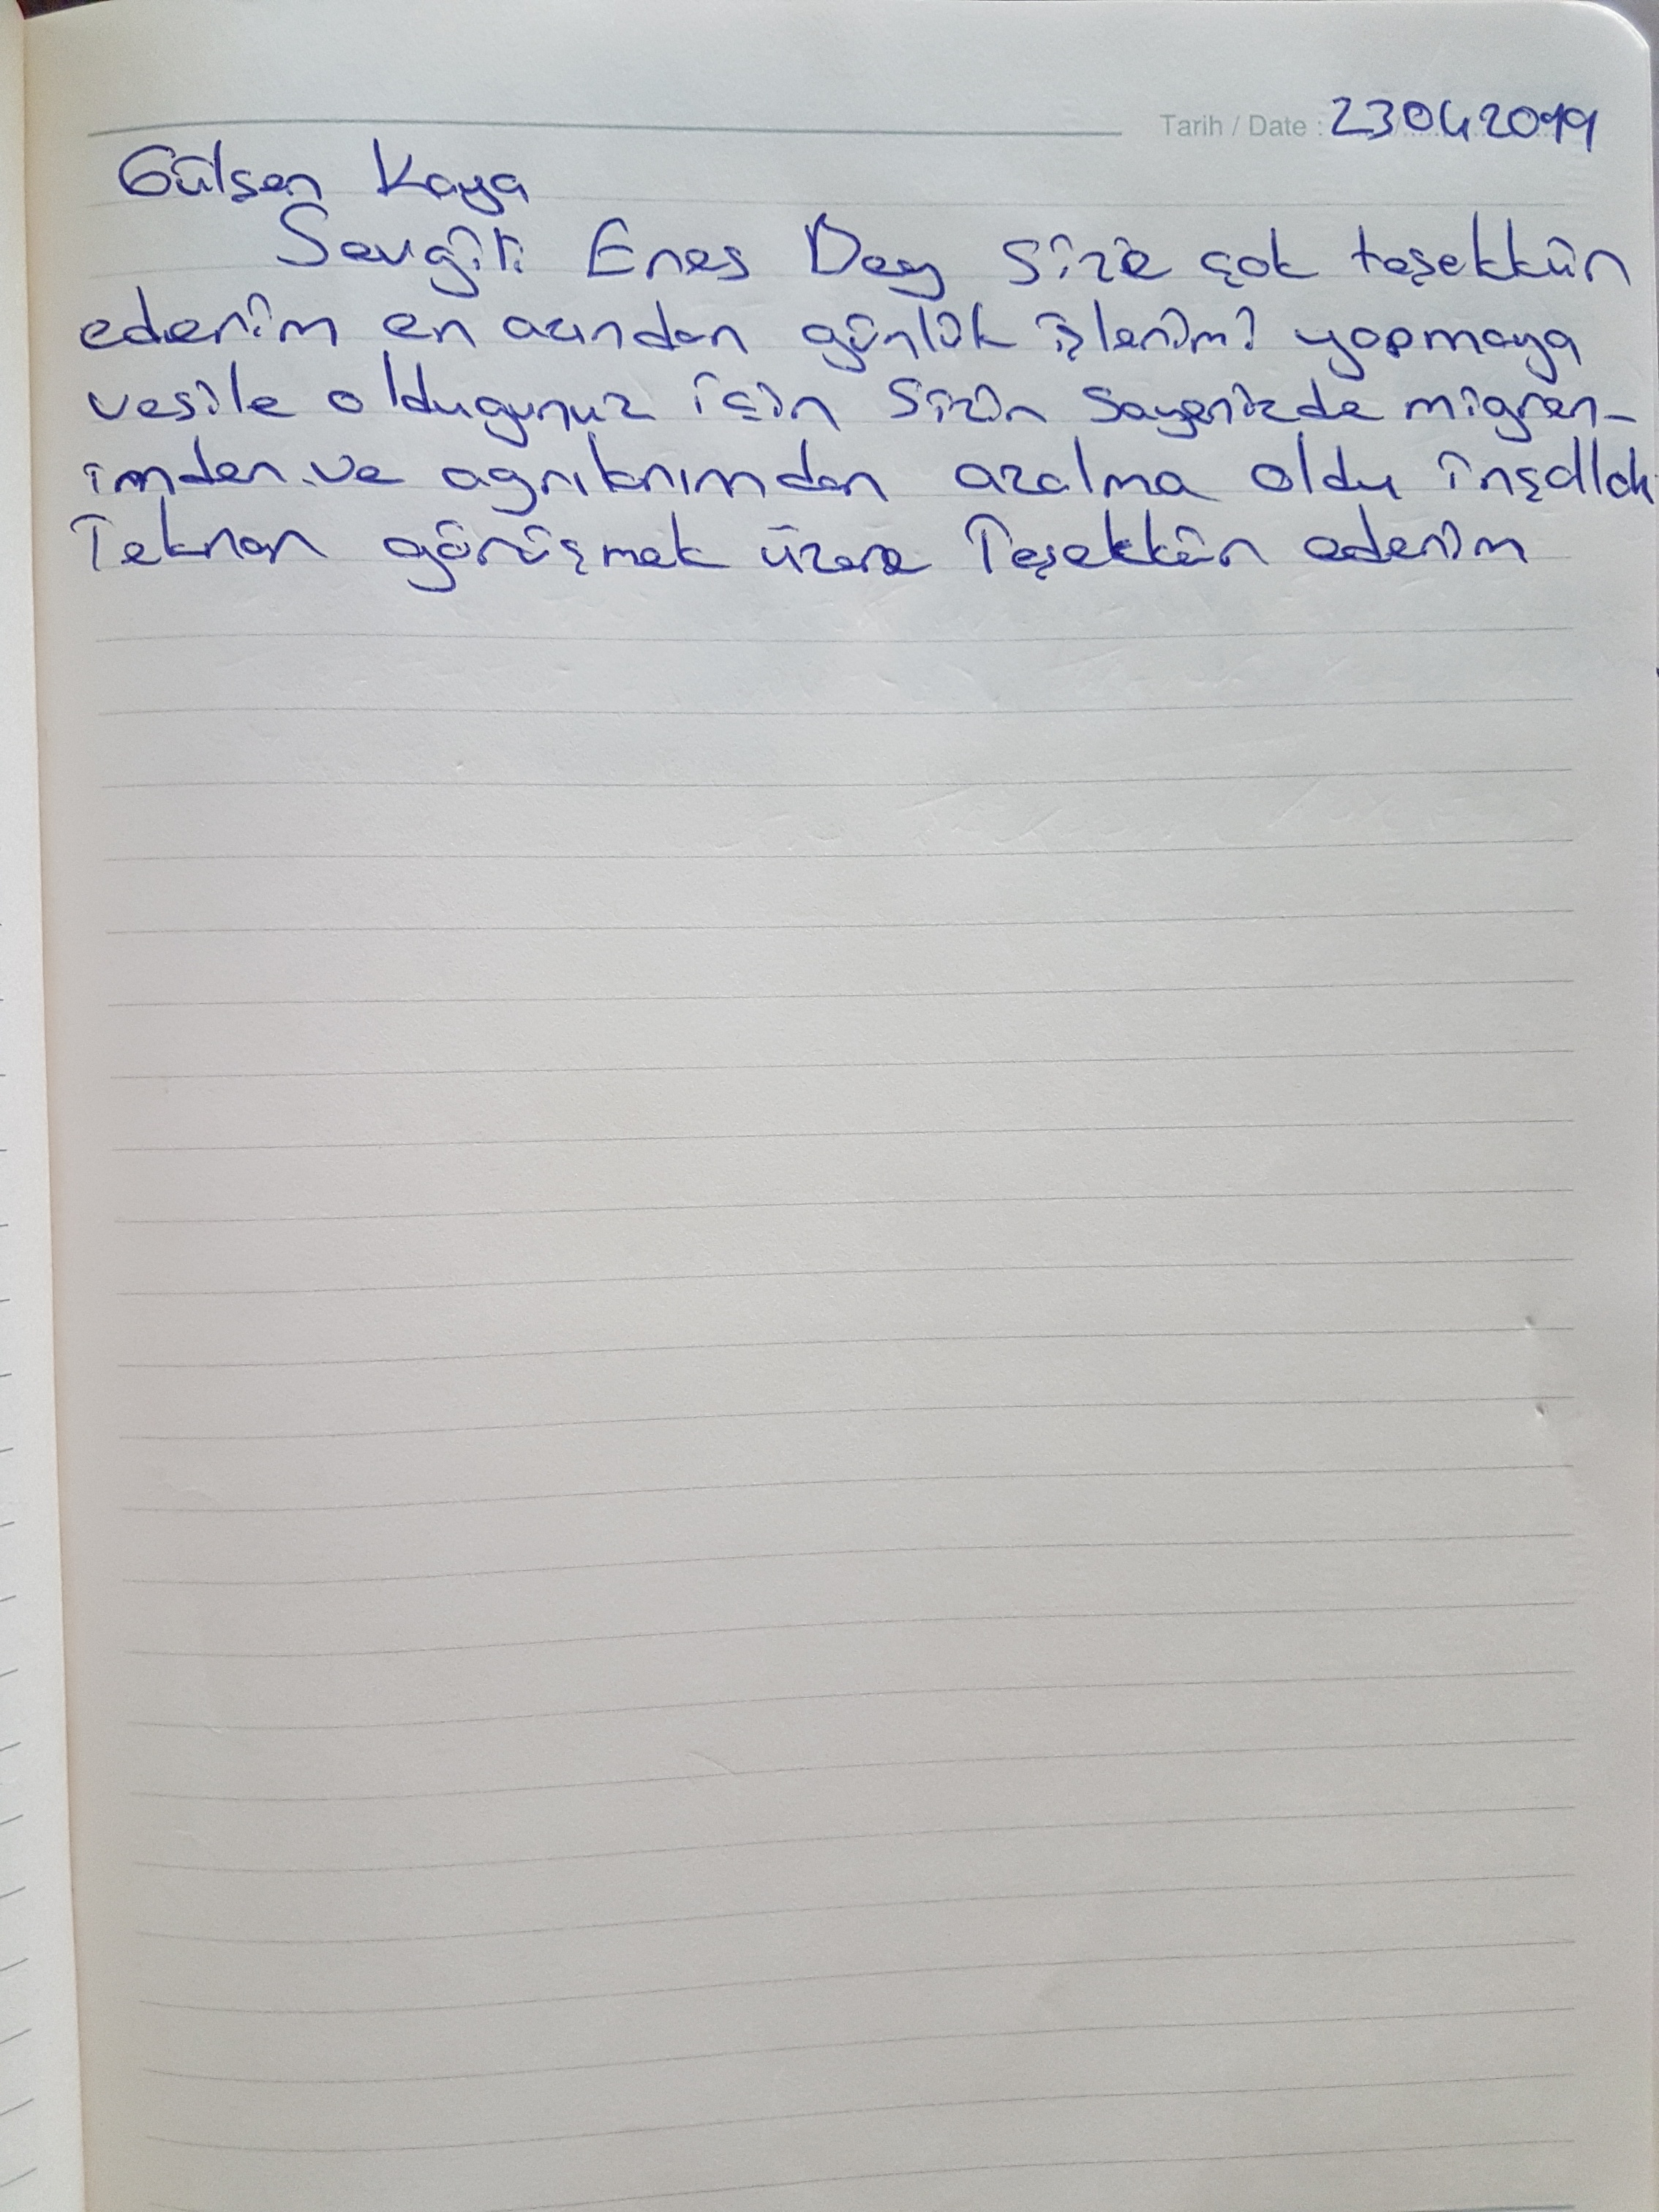 Tarih / Date : 23 04 2019
Gülşen Kaya
Sevgili Enes Bey size çok teşekkür
ederim en azından günlük işlerimi yapmaya
vesile oldugunuz için sizin sayenizde migren-
imden ve agrılarımdan azalma oldu inşallah
Tekrar görüşmek üzere Teşekkür ederim